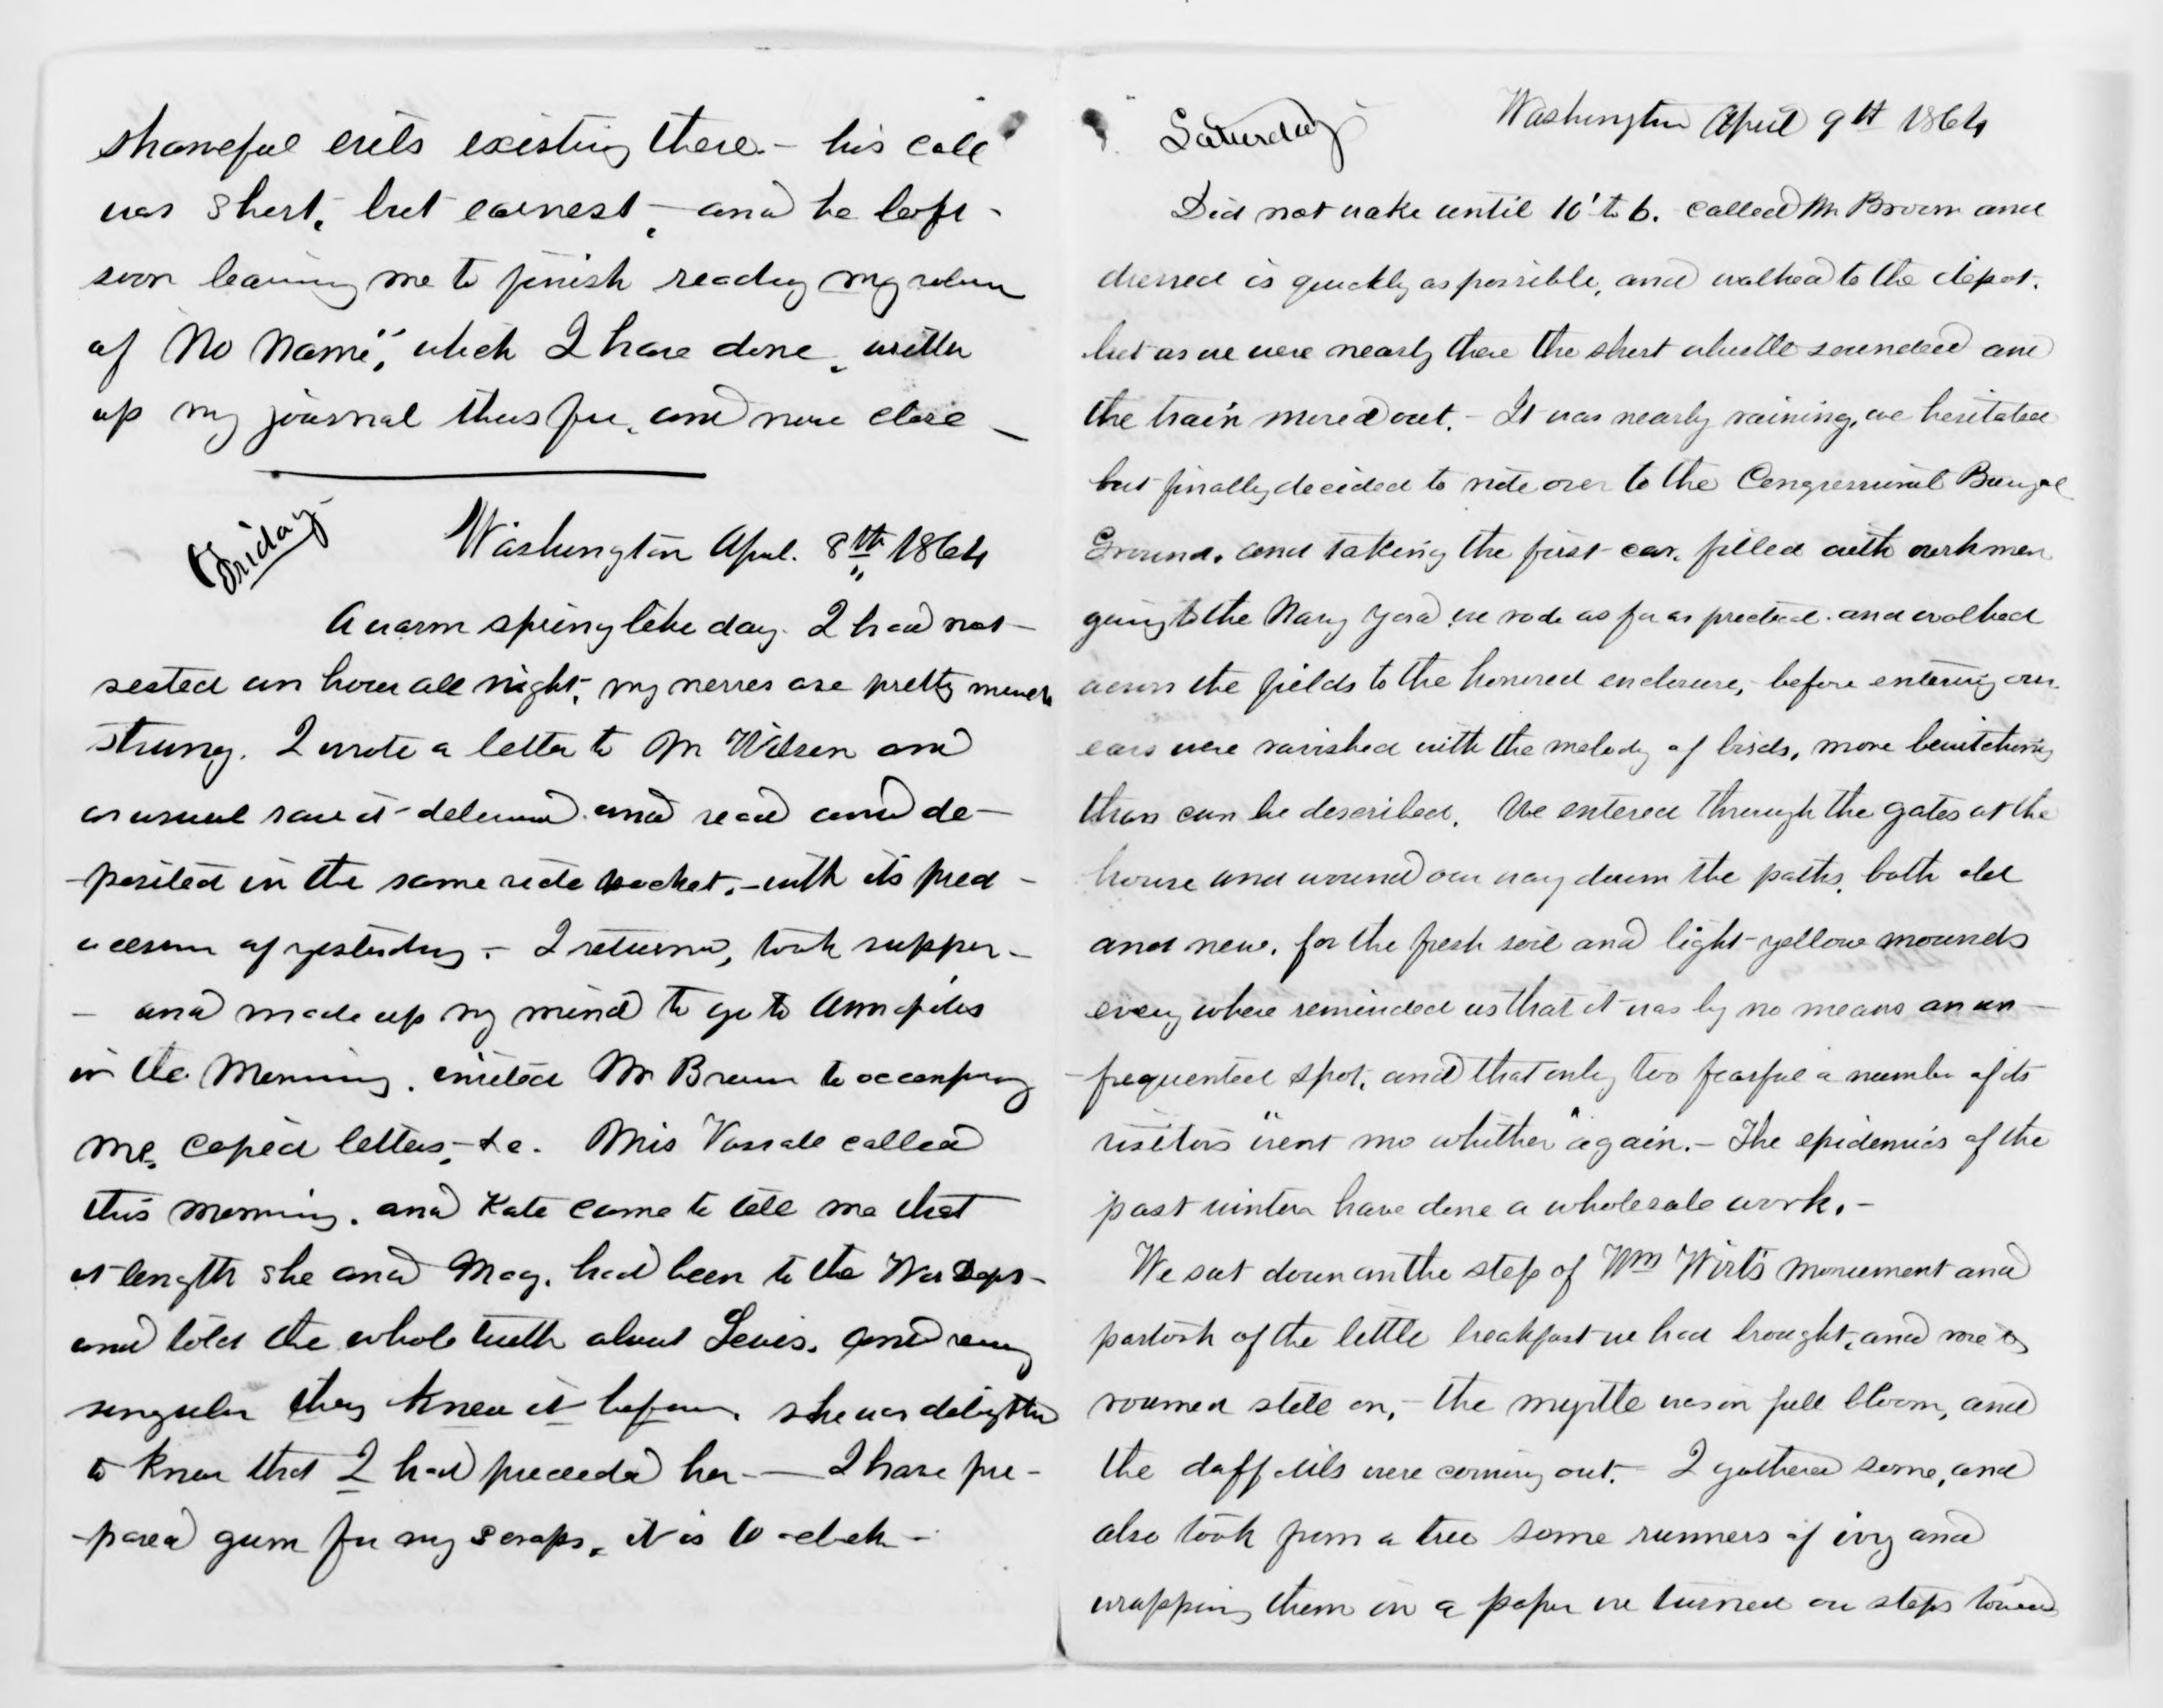 shameful evils existing there. – his call
was short, but earnest, – and he left
soon leaving me to finish reading my volume
of "No Name", which I have done, written
up my journal thus far, and now close –
Friday
Washington Apl. 8th 1864
A warm spring like day. I had not
rested an hour all night, my nerves are pretty much
strung. I wrote a letter to Mr Wilson and
as usual saw it delivered and read and de-
-posited in the same side pocket, – with its pred-
-ecessor of yesterday – I returned, took supper –
– and made up my mind to go to Annapolis
in the Morning. invited Mr Brown to accompany
me, copied letters, – &c. Miss Vassall called
this morning. and Kate came to tell me that
at length she and Mag. had been to the War Dept
and told the whole truth about Lewis. and very
singular they knew it before. she was delighted
to know that I had preceded her – – I have pre-
-pared gum for my scraps, it is 10 oclock –
Saturday Washington April 9th 1864
Did not wake until 10' to 6. called Mr Brown and
dressed as quickly as possible, and walked to the depot.
but as we were nearly there the short whistle sounded and
the train moved out. – It was nearly raining, we hesitated
but finally decided to ride over to the Congressional Burial
Ground. and taking the first car. filled with workmen
going to the Navy Yard we rode as far as practical. and walked
across the fields to the honored enclosure, – before entering our
ears were ravished with the melody of birds, more bewitching
than can be described. We entered through the gates at the
house and wound our way down the paths, both old
and new, for the fresh soil and light-yellow mounds
every where reminded us that it was by no means an un-
-frequented spot, and that only too fearful a number of its
visitors "went no whither" again. – The epidemics of the
past winter have done a wholesale work. –
We sat down on the step of Wm Wirts monument and
partook of the little breakfast we had brought, and
roamed still on, – the myrtle was in full bloom, and
the daffodils were coming out. – I gathered some, and
also took from a tree some runners of ivy and
wrapping them in a paper we turned our steps toward